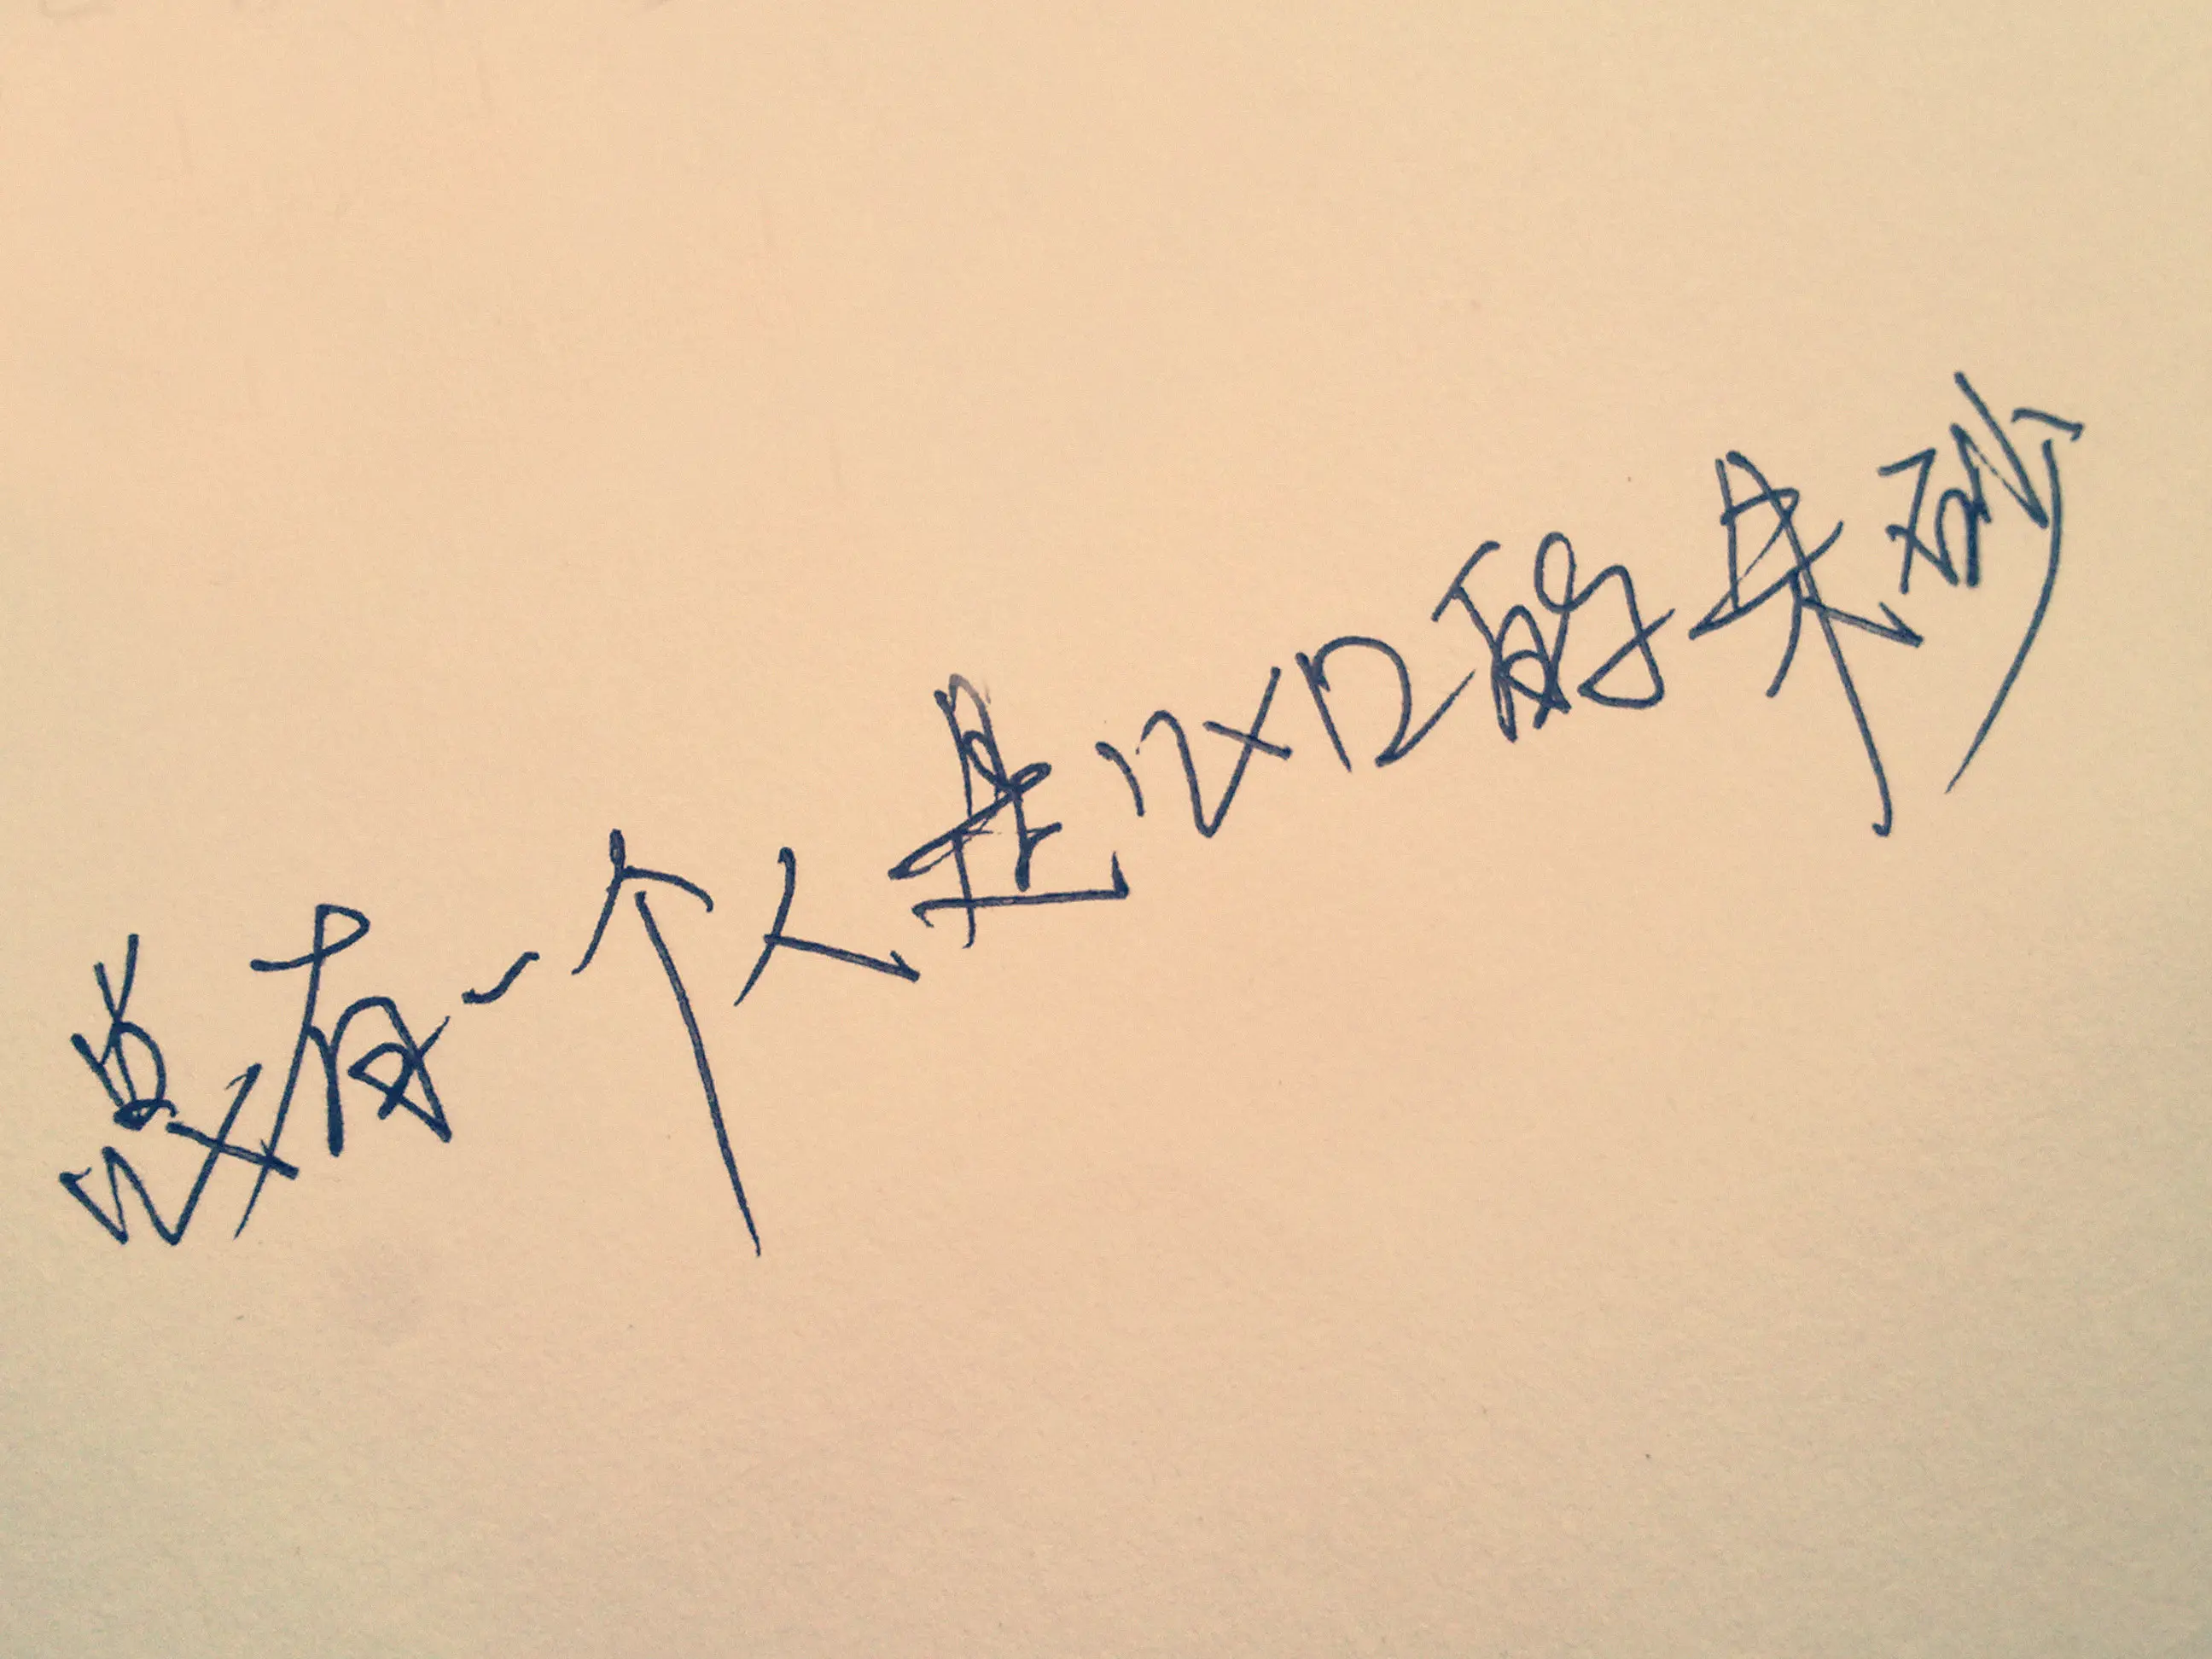 总有一个人是心口的朱砂